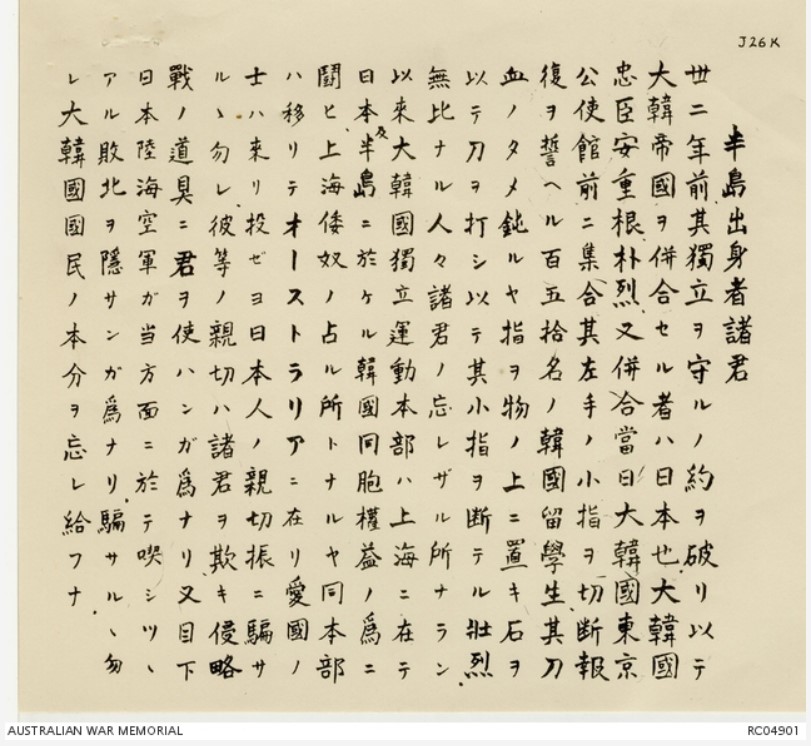 J26K
半島出身者諸君
丗二年前其獨立ヲ守ルノ約ヲ破リ以テ
大韓帝國ヲ併合セル者ハ日本也大韓國
忠臣安重根朴烈又併合當日大韓國東京
公使館前ニ集合其左手ノ小指ヲ切断報
復ヲ誓ヘル百五拾名ノ韓國留學生其刀
血ノタメ鈍ルヤ指ヲ物ノ上ニ置キ石ヲ
以テ刀ヲ打シ以テ其小指ヲ断テル壮烈
無比ナル人々諸君ノ忘レザル所ナラン.
以來大韓國獨立運動本部ハ上海ニ在テ
日本及半島ニ於ケル韓國同胞權益ノ為ニ
鬪ヒ上海倭奴ノ占ル所トナルヤ同本部
ハ移リテオーストラリアニ在リ愛國ノ
士ハ来リ投ゼヨ日本人ノ親切振ニ騙サ
ルヽ勿レ彼等ノ親切ハ諸君ヲ欺キ侵略
戰ノ道具ニ君ヲ使ハンガ爲ナリ又目下
日本陸海空軍ガ当方面ニ於テ喫シツヽ
アル敗北ヲ隱サンガ爲ナリ.騙サルヽ勿
レ大韓國國民ノ本分ヲ忘レ給フナ.
AUSTRALIAN WAR MEMORIAL
RC04901